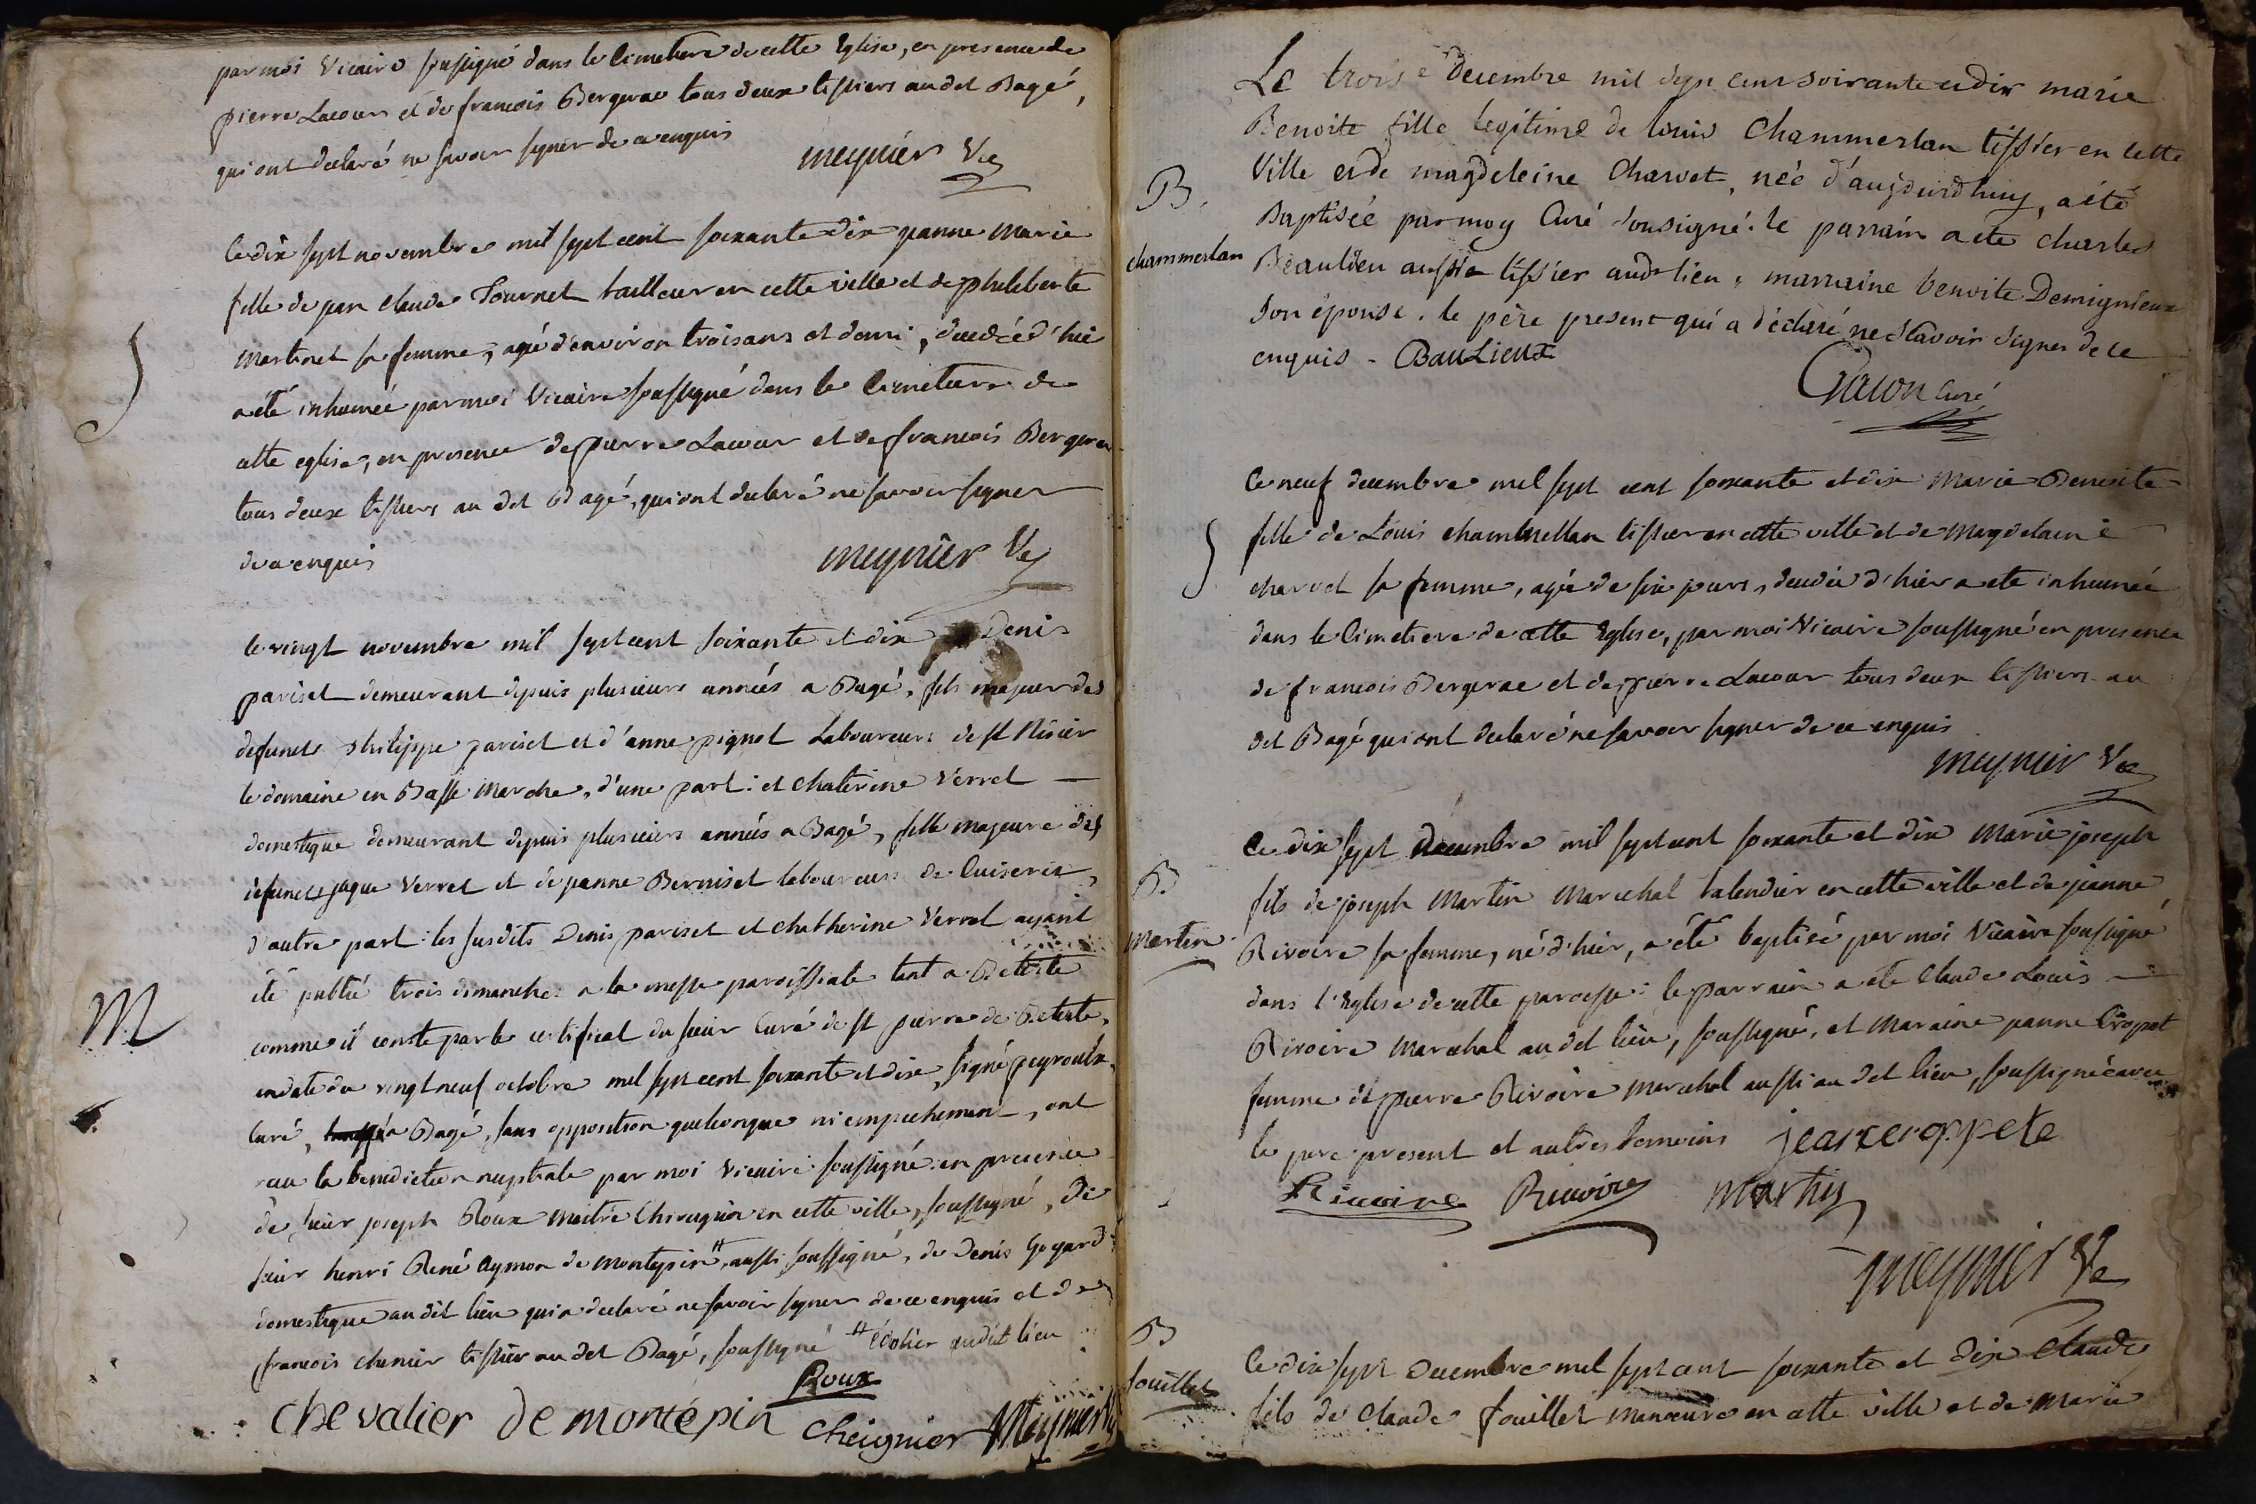 par moi Vicaire soussigné dans le Cimetiere de cette Eglise, en presence de
pierre Lacour et de francois Bergerac tous deux tissiers au dit Bagé,
qui ont declaré ne savoir signer de ce enquis
meynier Ve
le dix sept novembre mil sept cent soixante dix janne marie
fille de jean claude Tournet tailleur en cette ville et de philiberte
martinet sa femme, agé d'environ trois ans et demi, decedée d'hie
a été inhumée par moi Vicaire soussigné dans le Cimetiere de
cette eglise, en presence de pierre Lacour et de francois Bergerac
tous deux tissiers au dit Bagé, qui ont declaré ne savoir signer
de ce enquis
meynier Ve
le vingt novembre mil sept cent soixante et dix Denis
pariset demeurant depuis plusieurs années a Bagé, fils majeur des
defunts philippe pariset et d'anne pignot Laboureurs de st
le domaine en Basse Marche, d'une part: et Chaterine Verret
domestique demeurant depuis plusieurs années a Bagé, fille majeure des
defunts jaque Verret et de janne Berniset laboureurs de Cuiseria,
d'autre part: les susdits Denis pariset et chatherine Verret ayant
été publié trois dimanches a la messe paroissiale tant a Betete
comme il conste par le certificat du sieur Curé de st pierre de Betete,
en date du vingt neuf octobre mil sept cent soixante et dix, signé peyroulx
curé, a Bagé, sans opposition quelconque ni empechement, ont
recu la benediction nuptiale par moi Vicaire soussigné en presence
de sieur joseph Roux maitre Chirugien en cette ville, soussigné, de
sieur henri René Aymon de montepin # aussi soussigné, de Denis Goyard
domestique au dit lieu qui a declaré ne savoir signer de ce enquis et de
francois chenier tissier au dit Bagé, soussigné # écolier audit lieu
M
Roux
chevalier de montépin cheignier Meynier Ve
Le trois e decembre mil sept cent soixante et dix marie
Benoite fille legitime de louis Chammerlan tissier en cette
Ville et de magdeleine Charvet, née d'aujourdhuy, a été
Baptisée par moy Curé sousigné. le parrain a été charles
Beaulieu aussi tissier audt lieu, marraine benoite Demignieux
son épouse. le père present qui a déclaré ne scavoir signer de ce
enquis - BauLieux
B.
chammerlan
Curé
le neuf decembre mil sept cent soixante et dix Marie Benoite
fille de Louis chambrellan tissier en cette ville et de Magdelaine
charvet sa femme, agée de six jours, decedée d'hier a ete inhumée
dans le Cimetiere de cette Eglise, par moi Vicaire soussigné en presence
de francois Bergerac et de pierre Lacour tous deux tissiers au
dit Bagé qui ont declaré ne savoir signer de ce enquis
meynier Ve
le dix sept decembre mil sept cent soixante et dix Marie joseph
fils de joseph Martin Marechal talendier en cette ville et de janne
Rivoire sa femme, né d'hier, a été baptisé par moi Vicaire soussigné
dans l'Eglise de cette paroisse: le parrain a ete Claude Louis
Rivoire Marechal au dit lieu, soussigné, et Maraine janne Cropet
femme de pierre Rivoire Marechal aussi au dit lieu, soussignée avec
le pere present et autres temoins jeane croppete
B
Martin
Rivoire Rivoire Martin
meynier Ve
B
fouillet
le dix sept Decembre mil sept cent soixante et dix Claude
fils de Claude fouillet Manoeuvre en cette ville et de Marie